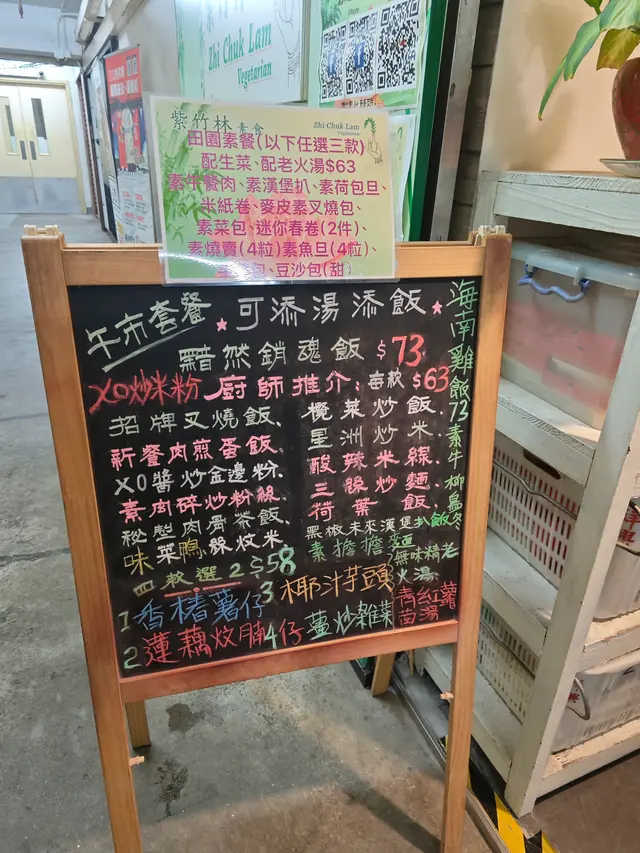 Zhi Chuk Lam
Vegetarian
紫竹林素食
Zhi Chuk Lam
Vegetarian
田園素餐(以下任選三款)
配生菜、配老火湯$63
素午餐肉、素漢堡扒、素荷包旦、
米紙卷、麥皮素叉燒包、
素菜包、迷你春卷(2件)、
素燒賣(4粒)素魚旦(4粒)、
包、豆沙包(甜)
午市套餐
可添湯添飯
黯然銷魂飯 $73
XO炒米粉
廚師推介:每款 $63
招牌叉燒飯、
新餐肉煎蛋飯、
XO醬炒金邊粉
素肉碎炒粉絲
秘製肉骨茶飯、
味菜鴨絲炆米
欖菜炒飯、
星洲炒米、
酸辣米線、
三絲炒麵
荷葉飯、
黑椒未來漢堡扒飯
素擔擔麵
海南雞飯73素牛柳烏冬
四款選2 $58
1香椿薯仔
2蓮藕炆腩
3椰汁芋頭
4仔薑炒雜菜
無味精老火湯
青紅蘿蔔湯